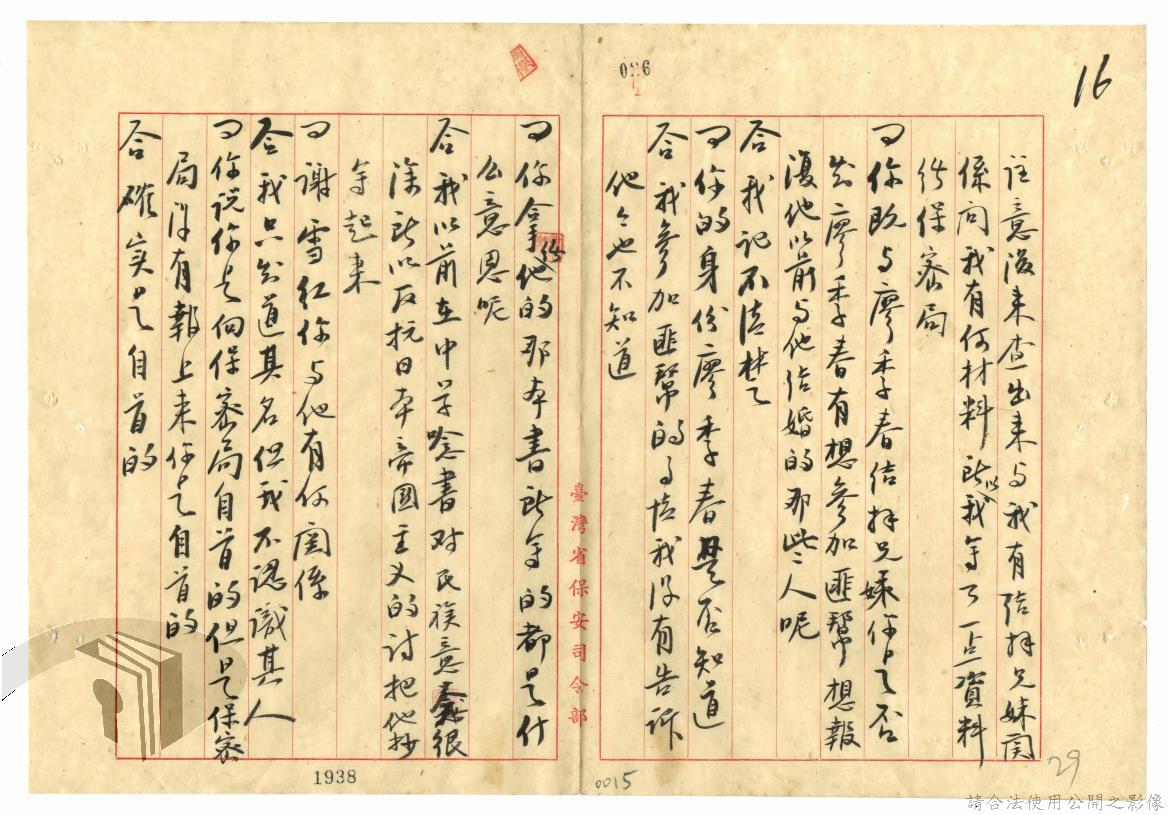 16
026
註意後来查出来与我有结拜兄妹関
係向我有何材料所以我写了一点資料
给保密局
问你既与廖季春结拜兄妹你是否
知廖季春有想參加匪幫想報
復他以前与他结婚的那些人呢
答我记不清楚了
问你的身份廖季春是否知道
答我參加匪幫的事情我没有告訴
他他也不知道
臺灣省保安司令部
问你拿给他的那本書所写的都是什
么意思呢
答我以前在中学唸書对民族意識很
深所以反抗日本帝國主义的诗把他抄
写起来
问谢雪红你与他有何関係
答我只知道其名但我不認識其人
问你说你是向保密局自首的但是保密
局没有報上来你是自首的
答確实是自首的
1938
0015
29
請合法使用公開之影像